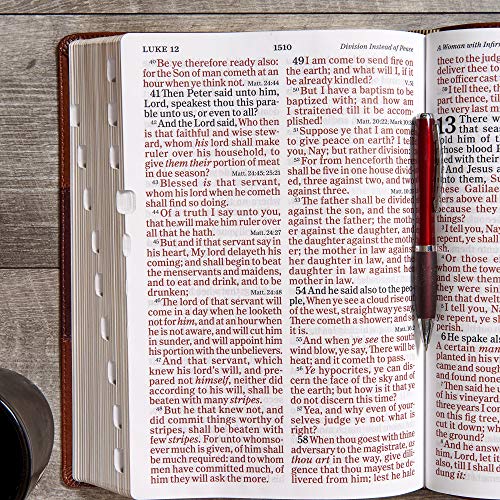 LUKE 12 1510 Division Instead of Peace
40 Be ye therefore ready also:
for the Son of man cometh at an
hour when ye think not. Matt. 24:44
41 Then Peter said unto him,
Lord, speakest thou this para-
ble unto us, or even to all?
42 And the Lord said, Who then
is that faithful and wise stew-
ard, whom his lord shall make
ruler over his household, to
give them their portion of meat
in due season? Matt. 24:45; 25:21
43 Blessed is that servant,
whom his lord when he cometh
shall find so doing.
44 Of a truth I say unto you,
that he will make him ruler over
all that he hath. Matt. 24:47
45 But and if that servant say in
his heart, My lord delayeth his
coming; and shall begin to beat
the menservants and maidens,
and to eat and drink, and to be
drunken; Matt. 24:48
46 The lord of that servant will
come in a day when he looketh
not for him, and at an hour when
he is not aware, and will cut him
in sunder, and will appoint him
his portion with the unbelievers.
47 And that servant, which
knew his lord's will, and pre-
pared not himself, neither did
according to his will, shall be
beaten with many stripes.
48 But he that knew not, and
did commit things worthy of
stripes, shall be beaten with
few stripes. For unto whomso-
ever much is given, of him shall
be much required: and to whom
men have committed much, of
him they will ask the more.
49 I am come to send fire on
the earth; and what will I, if it
be already kindled? V. 51
50 But I have a baptism to
be baptized with; and how am
I straitened till it be accom-
plished! Matt. 20:22, Mark 10:38
51 Suppose ye that I am come
to give peace on earth? I tell
you, Nay; but rather division:
52 For from henceforth there
shall be five in one house divid-
ed, three against two, and two
against three.
53 The father shall be divided
against the son, and the son
against the father; the mother
against the daughter, and the
daughter against the mother;
the mother in law against
her daughter in law, and the
daughter in law against her
mother in law.
54 And he said also to the peo-
ple, When ye see a cloud rise out
of the west, straightway ye say,
There cometh a shower; and so
it is.
55 And when ye see the south
wind blow, ye say, There will be
heat; and it cometh to pass.
56 Ye hypocrites, ye can dis-
cern the face of the sky and of
the earth; but how is it that ye
do not discern this time?
57 Yea, and why even of your-
selves judge ye not what is
right?
58 When thou goest with thine
adversary to the magistrate, as
thou art in the way, give dili-
gence that thou mayest be de-
livered from him; lest he hale
A Woman with Infir
thee to the judge
deliver thee to the
officer cast thee
59 I tell thee, th
13 There were
that
told him of
And Jesus a
into them, Su
because they
things?
I tell you,
repent, ye sh
Or those
whom the
repent, ye
6 He spake
A certain man
planted in his
came and soug
found none
7 Then said
of his vineyard
three years I c
on this fig tree,
cut it down; w
the ground?
8 And he answ
Lord, let it al
also, till I shall